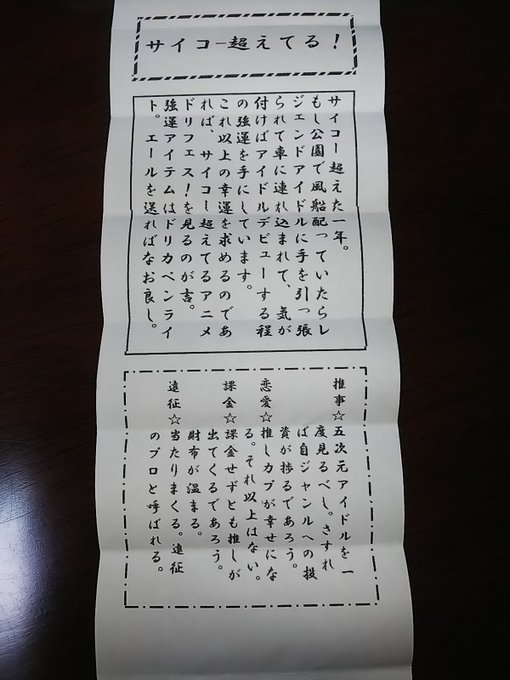 サイコー超えてる！
サイコー超えた一年。
もし公園で風船配っていたらレ
ジェンドアイドルに手を引っ張
られて車に連れ込まれて、気が
付けばアイドルデビューする程
の強運を手にしています。
これ以上の幸運を求めるのであ
れば、サイコー超えてるアニメ
ドリフェス！を見るのが吉。
強運アイテムはドリカペンライ
ト。エールを送ればなお良し。
推事☆五次元アイドルを一
度見るべし。さすれ
ば自ジャンルへの投
資が捗るであろう。
恋愛☆推しカプが幸せにな
る。それ以上はない。
課金☆課金せずとも推しが
出てくるであろう。
財布が温まる。
遠征☆当たりまくる。遠征
のプロと呼ばれる。